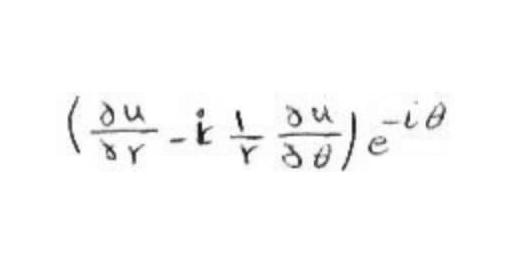 (∂u/∂r - i 1/r ∂u/∂θ) e^{-iθ}